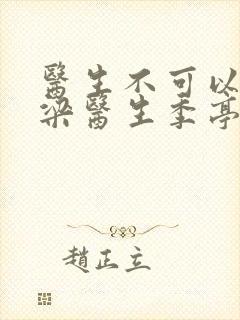 醫生不可以
梁醫生季亭
趙正立